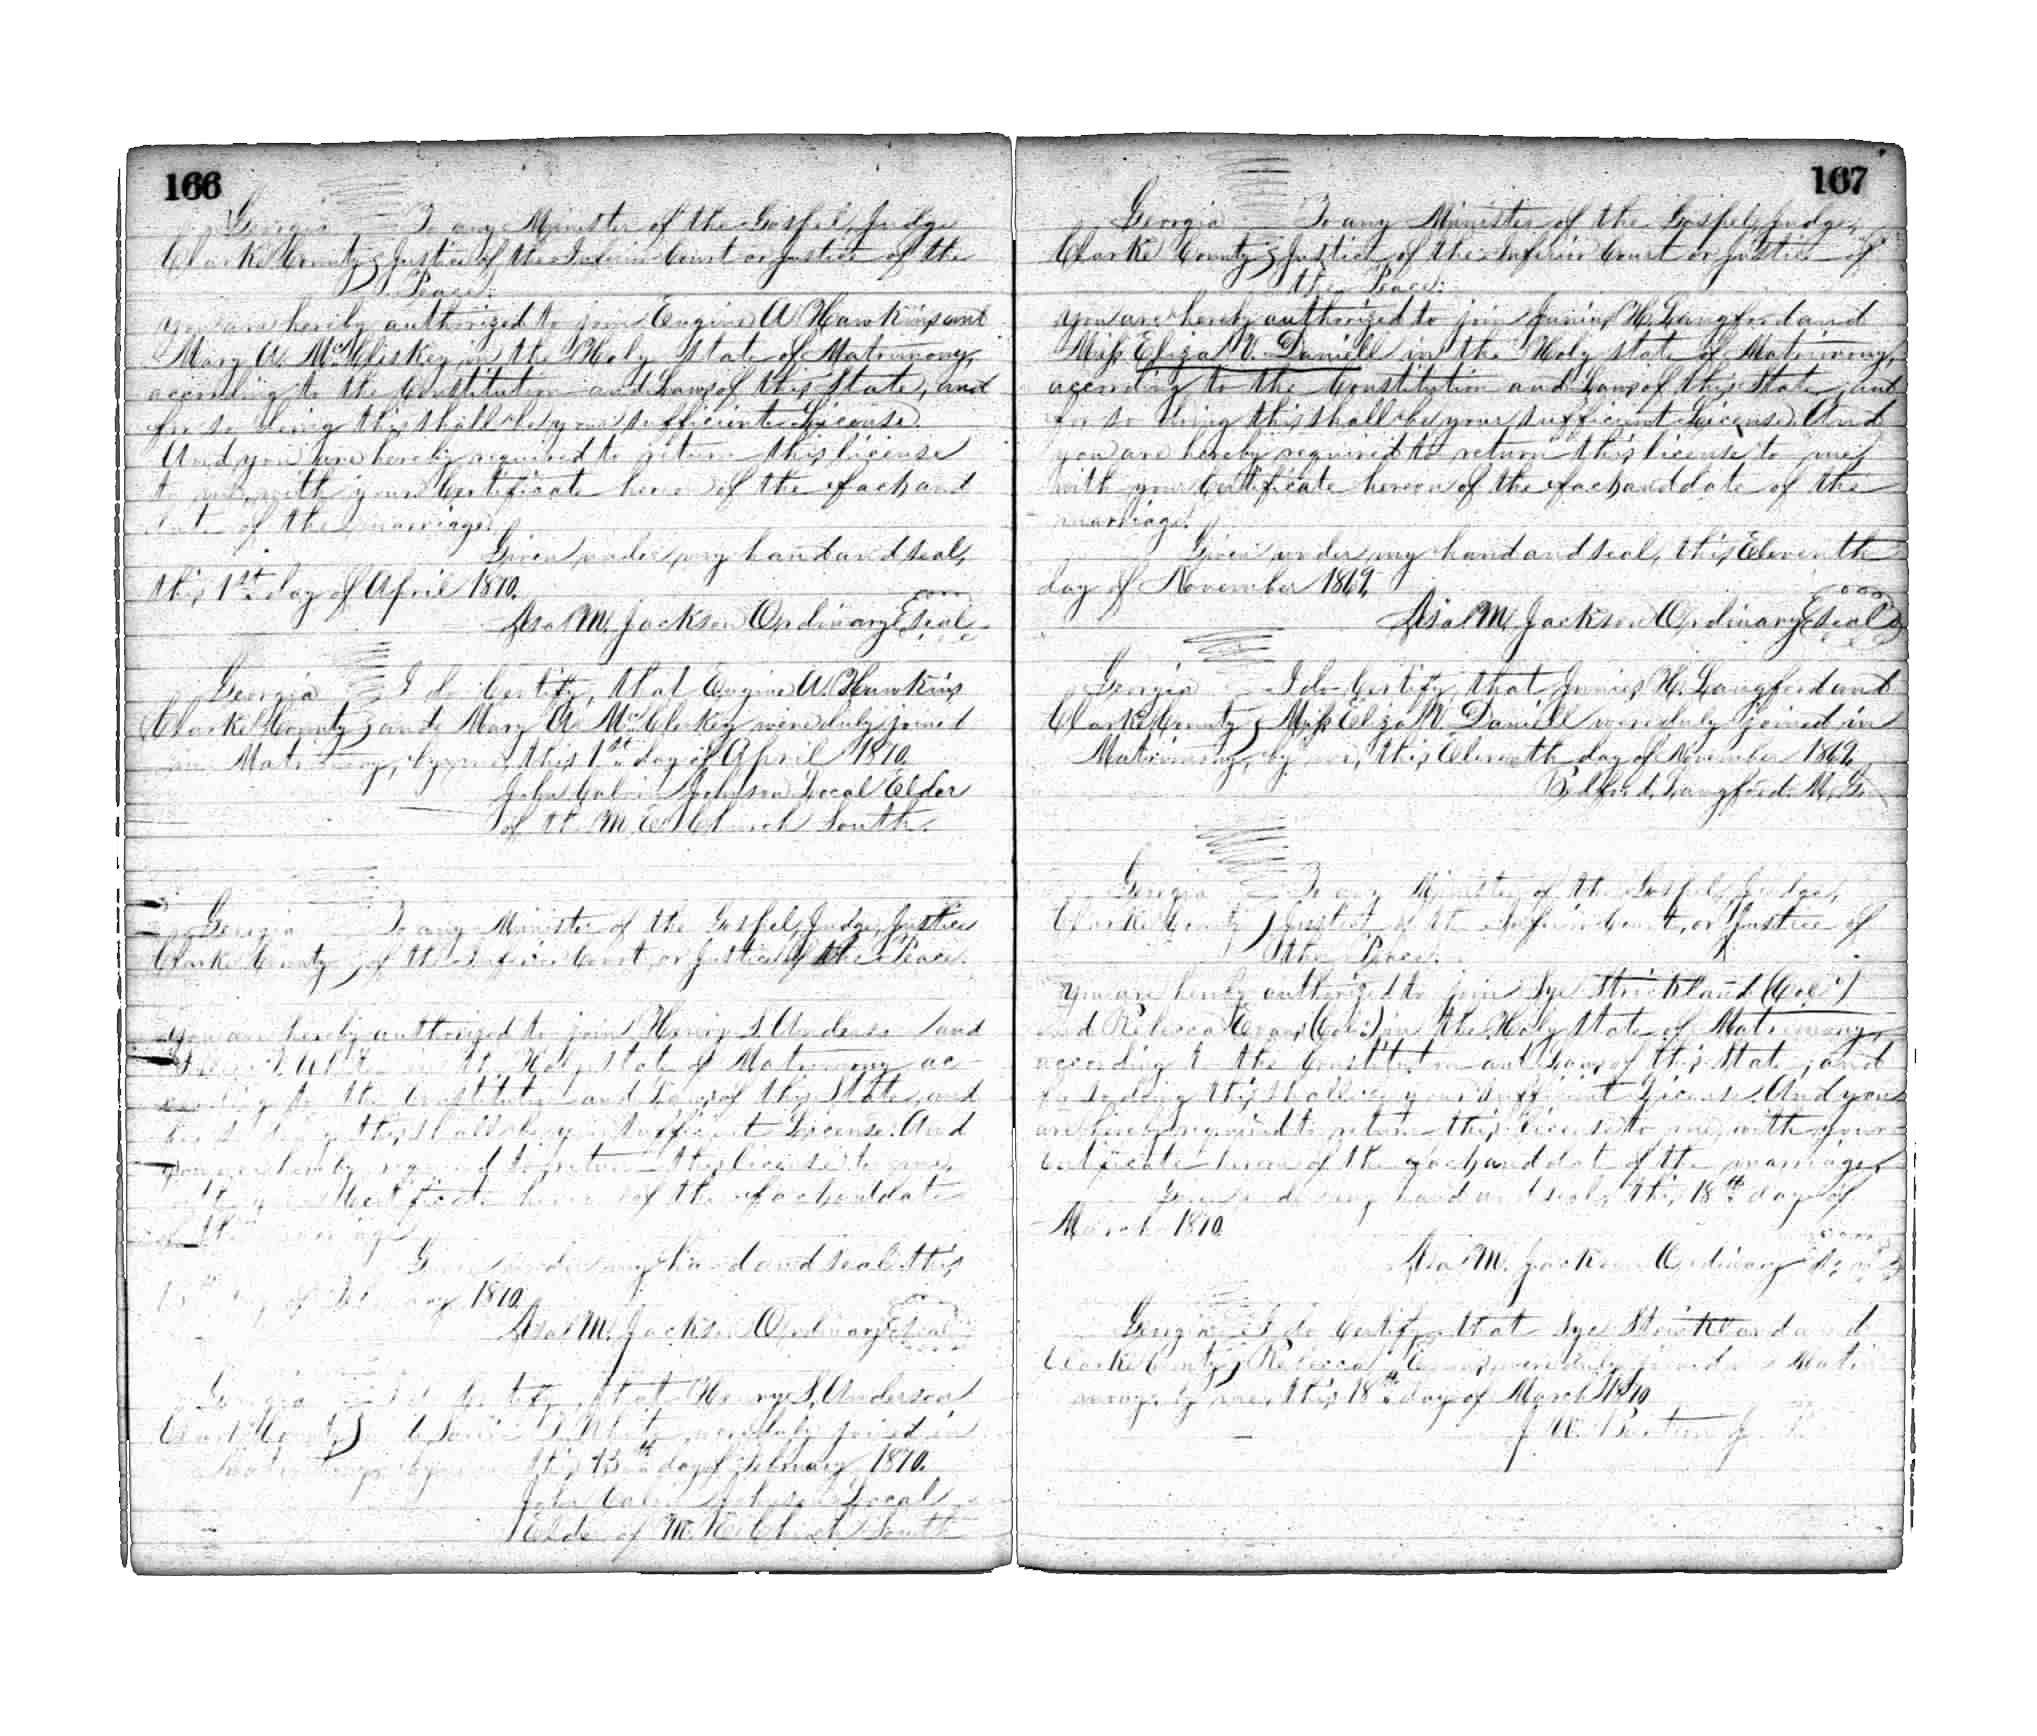 166
Georgia To any Minister of the Gospel, Judge
Clarke County } Justice of the Inferior Court or Justice of the
Peace.
You are hereby authorized to join Eugine A Hawkins and
Mary A. McCleskey in the Holy State of Matrimony,
according to the Constitution and Laws of this State, and
for so doing this shall be your sufficient License
And you are hereby required to return this license
to me with your Certificate hereon of the fact and
date of the marriage.
Given under my hand and seal,
this 1st day of April 1870.
Asa M. Jackson Ordinary Seal
Georgia I do Certify, that Eugine A. Hawkins
Clarke County } and Mary A. McCleskey were duly joined
in Matrimony, by me, this 1st day of April 1870.
John Calvin Johnson Local Elder
of the M. E. Church South.
Georgia To any Minister of the Gospel, Judge, Justice
Clarke County } of the Inferior Court, or Justice of the Peace.
You are hereby authorized to join Henry S. Anderson and
White in the Holy state of Matrimony ac-
cording to the Constitution and Laws of this State, and
for so doing this shall be your sufficient License. And
you are hereby required to return this license to me,
with your Certificate hereon of the fact and date
of the marriage.
Given under my hand and seal this
13th day of February 1870.
Asa M. Jackson Ordinary Seal
Georgia I do Certify, that Henry S. Anderson
Clark County } White were duly joined in
Matrimony by me this 13th day of February 1870.
John Calvin Johnson Local
Elder of M. E. Church South
167
Georgia To any Minister of the Gospel, Judge,
Clarke County } Justice of the Inferior Court or Justice of
the Peace.
You are hereby authorized to join Junius H. Langford and
Miss Eliza V. Daniell in the Holy state of Matrimony,
according to the Constitution and Laws of this State, and
for so doing this shall be your sufficient License. And
you are hereby required to return this license to me,
with your Certificate hereon of the fact and date of the
marriage.
Given under my hand and seal, this Eleventh
day of November 1869.
Asa M. Jackson Ordinary Seal
Georgia I do Certify that Junius H. Langford and
Clarke County } Miss Eliza V. Daniell were duly joined in
Matrimony, by me, this Eleventh day of November 1869.
Bedford Langford M. G.
Georgia To any Minister of the Gospel, Judge,
Clarke County } Justice of the Inferior Court, or Justice of
the Peace.
You are hereby authorized to join Sye Strickland (Cold)
and Rebecca Evans (Cold) in the Holy State of Matrimony,
according to the Constitution and Laws of this State, and
for so doing this shall be your sufficient License. And you
are hereby required to return this license to me, with your
Certificate hereon of the fact and date of the marriage.
Given under my hand and seal, this 18th day of
March 1870.
Asa M. Jackson Ordinary Seal
Georgia I do Certify that Sye Strickland and
Clarke County } Rebecca Evans were duly joined in Matri
mony by me, this 18th day of March 1870
J. W. Burton J. P.